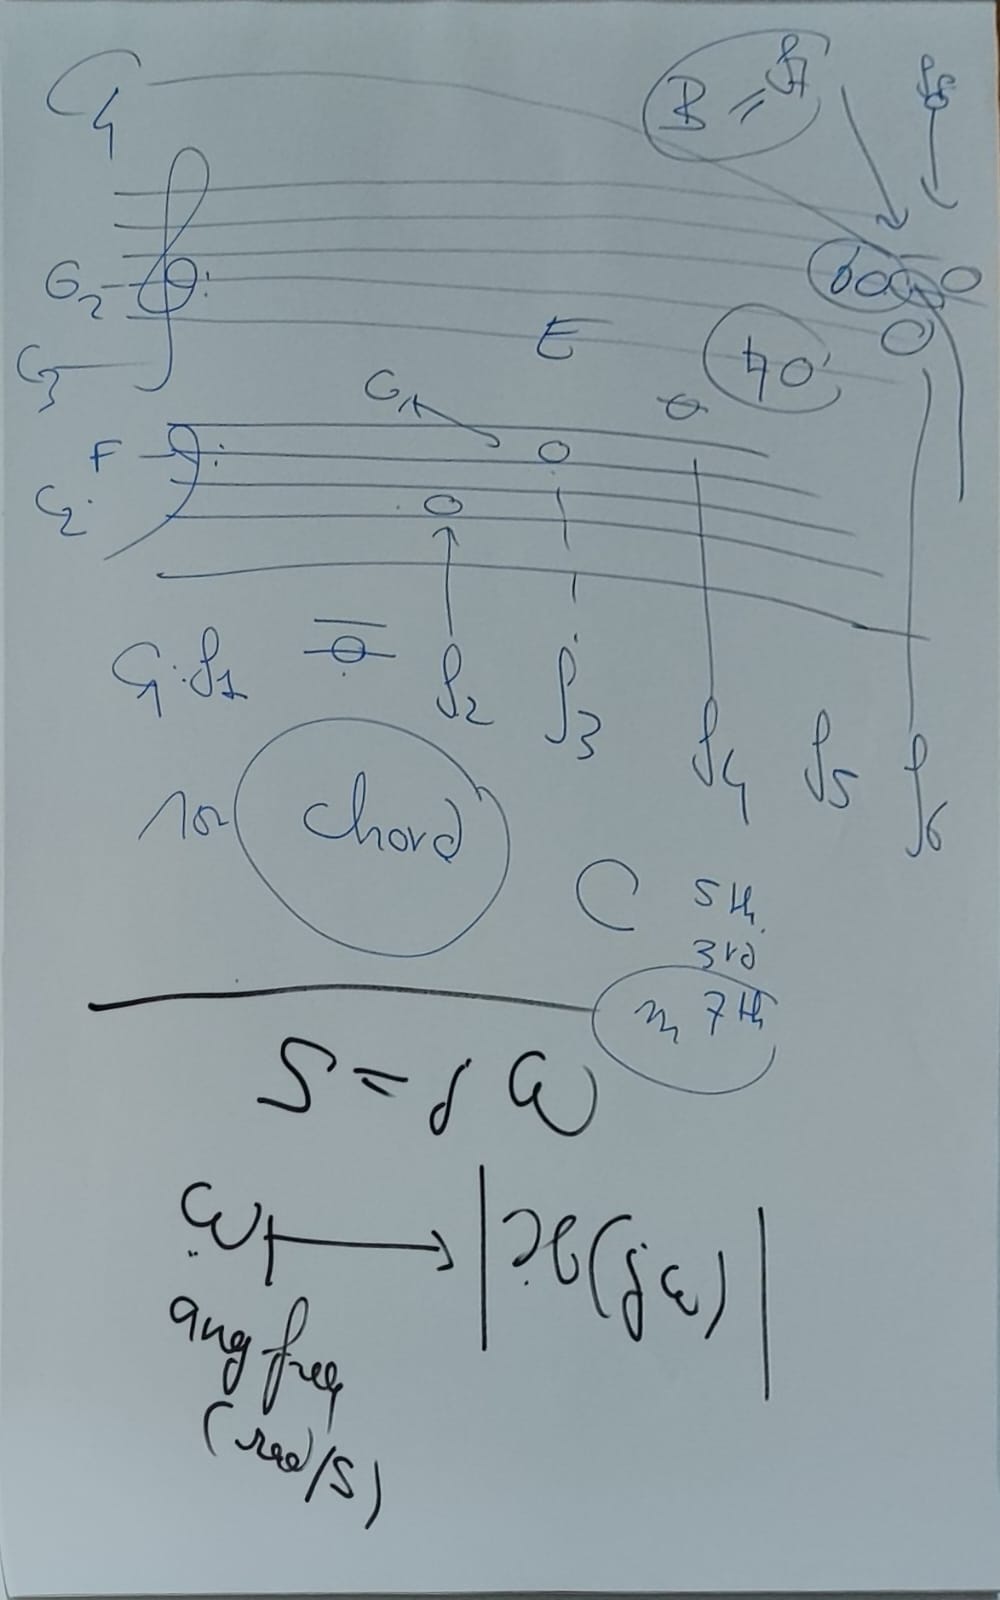 G
B = f7
f8
G2
C3
E
40
G
F
C2
G: f1
f2
f3
f4
f5
f6
chord
C 5th
3rd
m 7th
S = jω
ω ↦ |H(jω)|
ang freq
(rad/s)